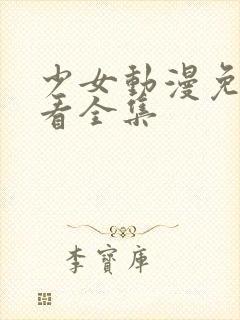 少女動漫免
看全集
李寶庫